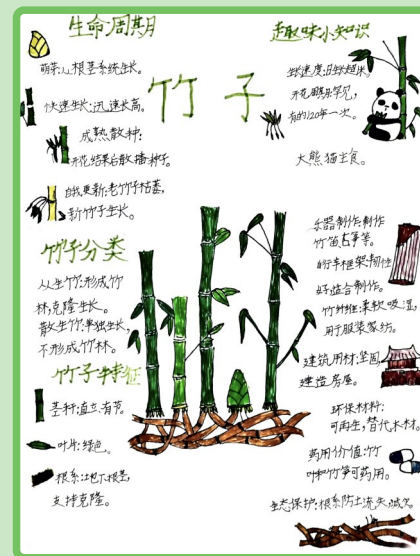 生命周期
萌芽:从根茎系统生长。
快速生长:迅速长高。
成熟散种:
开花结果后散播种子。
自我更新:老竹子枯萎,
新竹子生长。
竹子
趣味小知识
生长速度:日生长超米,
开花期罕见,
有的120年一次。
大熊猫主食。
竹子分类
丛生竹:形成竹
林,克隆生长。
散生竹:单独生长,
不形成竹林。
竹子特征
茎秆:直立、有节。
叶片:绿色。
根系:地下根茎,
支持克隆。
乐器制作:制作
竹笛古筝等。
自行车框架:韧性
好适合制作。
竹纤维:柔软吸湿,
用于服装家纺。
建筑用材:坚固,
建造房屋。
环保材料:
可再生,替代木材。
药用价值:竹
叶和竹笋可药用。
生态保护:根系防土流失